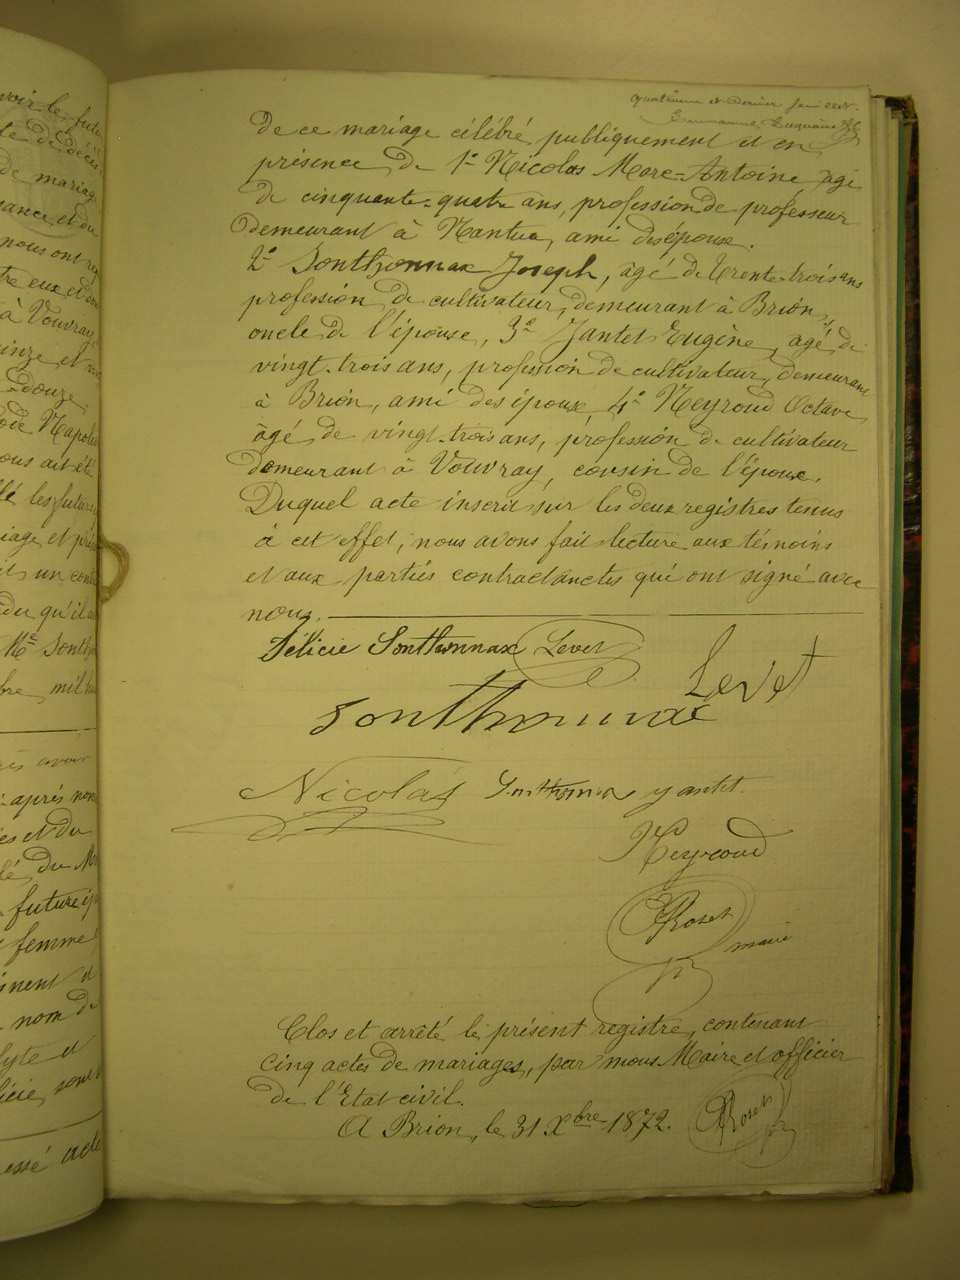 quatrième et dernier feuillet.
de ce mariage célébré publiquement et en
présence de 1° Nicolas Marc-Antoine âgé
de cinquante-quatre ans, profession de professeur
demeurant à Nantua, ami des époux.
2° Sonthonnax Joseph, âgé de trente-trois ans
profession de cultivateur, demeurant à Brion,
oncle de l'épouse, 3° Jantet Eugène, agé de
vingt-trois ans, profession de cultivateur, demeurant
à Brion, ami des époux, 4° Neyroud Octave
âgé de vingt-trois ans, profession de cultivateur
demeurant à Vouvray, cousin de l'époux.
Duquel acte inscrit sur les deux registres tenus
à cet effet, nous avons fait lecture aux témoins
et aux parties contractanctes qui ont signé avec
nous.
Félicie Sonthonnax Levet
Levet
Sonthonnax
Nicolas Sonthonnax yantet
Neyroud
Roset
maire
Clos et arrêté le présent registre, contenant
cinq actes de mariages, par nous Maire et officier
de l'Etat civil.
A Brion, le 31 Xbre 1872. Roset
voir les futu
de mariag
nance et du
nous ont re
à Vouvray
inze et
Douze
Napol
ous ait ét
les futurs
iage et
un cont
du qu'il
Me Sonth
bre mil hu
avoir
après nom
es et du
lé du M
future ép
femme
nent et
nom de
lyte et
licie sont
essé acte